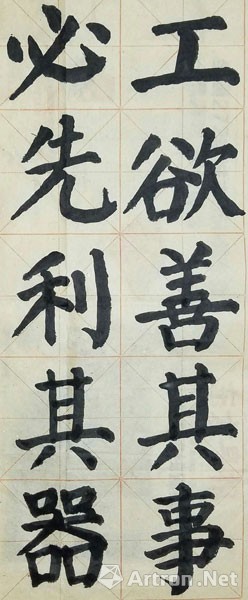 工欲善其事
必先利其器
Artron.Net